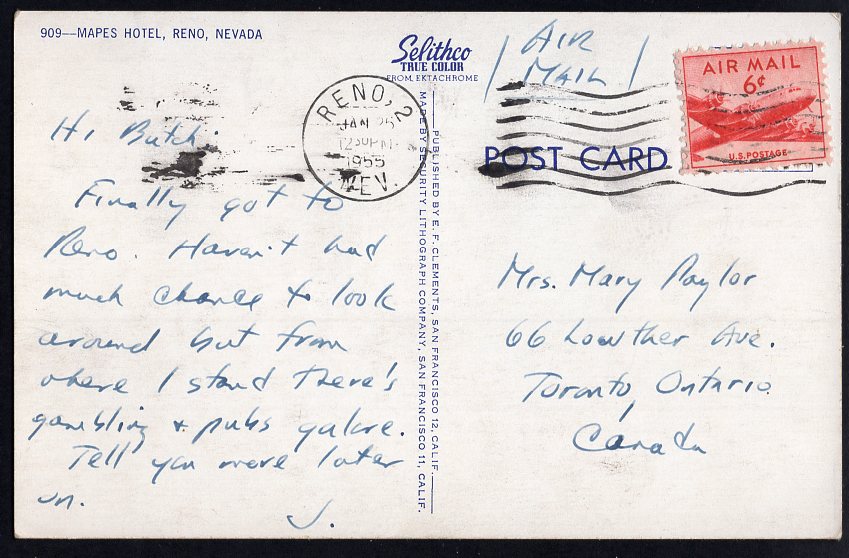 909—MAPES HOTEL, RENO, NEVADA
Selithco
TRUE COLOR
FROM EKTACHROME
AIR
MAIL
AIR MAIL
6¢
U.S. POSTAGE
RENO, 2
JAN 26
12 30 PM
1955
NEV.
POST CARD
Hi Butch:
Finally got to
Reno. Haven't had
much chance to look
around but from
where I stand there's
gambling & pubs galore.
Tell you more later
on.
J.
PUBLISHED BY E. F. CLEMENTS, SAN FRANCISCO 12, CALIF.
MADE BY SECURITY LITHOGRAPH COMPANY, SAN FRANCISCO 11, CALIF.
Mrs. Mary Paylor
66 Lowther Ave.
Toronto, Ontario
Canada